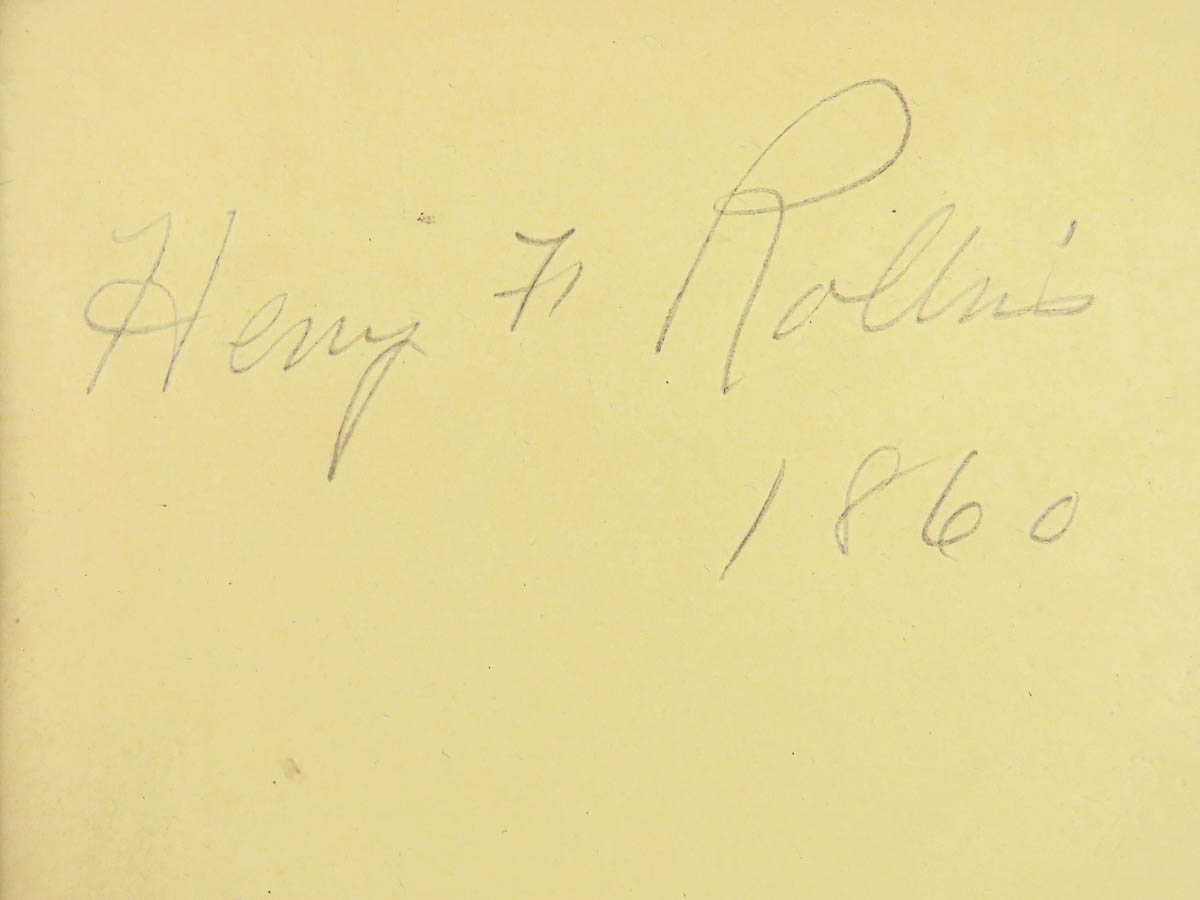 Henry F Rollins
1860